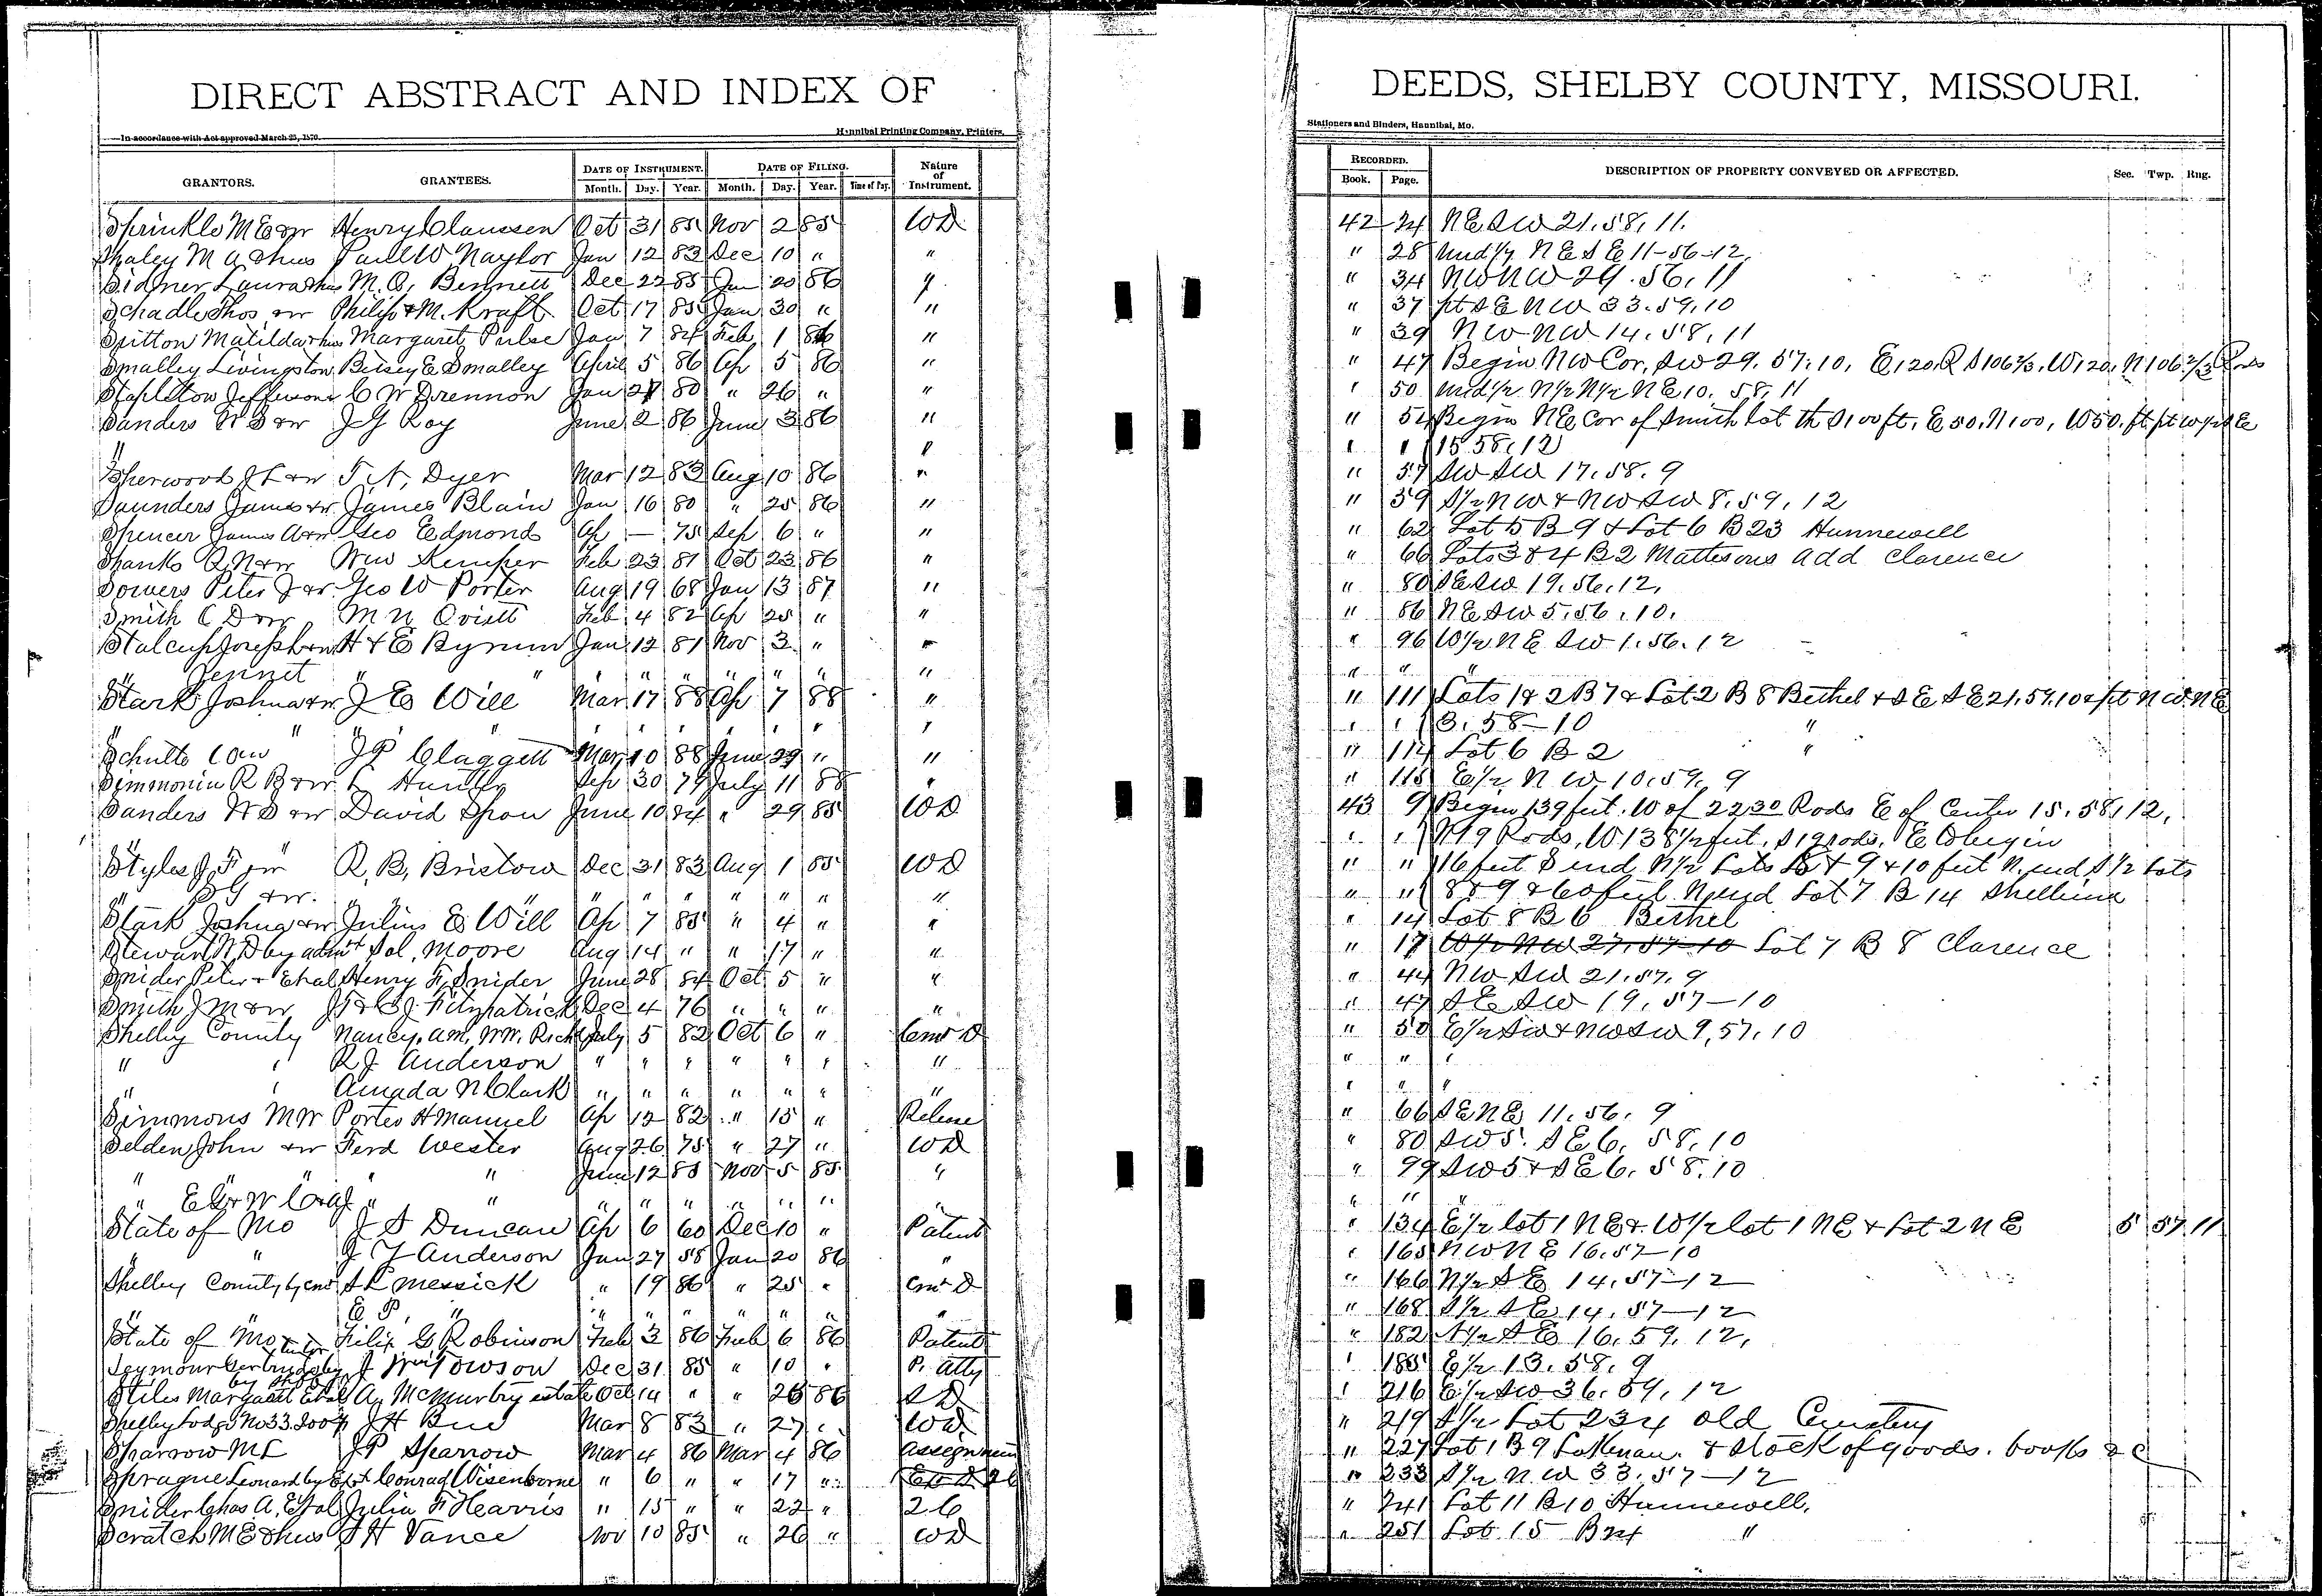 DIRECT ABSTRACT AND INDEX OF
—In accordance with Act approved March 25, 1870.
Hannibal Printing Company, Printers.
GRANTORS. GRANTEES. DATE OF INSTRUMENT. Month. Day. Year. DATE OF FILING. Month. Day. Year. Time of Day. Nature of Instrument.
Sprinkle M E & w Henry Claussen Oct 31 85 Nov 2 85 WD
Shaley M A & hus Paul W Naylor Jan 12 83 Dec 10 " "
Sidner Laura & hus M. O. Bennett Dec 22 85 Jan 20 86 "
Schadle Thos & w Philip & M. Kraft Oct 17 85 Jan 30 " "
Sutton Matilda & hus Margaret Jan 7 84 Feb 1 86 "
Smalley Livingston Betsey E Smalley April 5 86 Ap 5 86 "
Stapleton Jefferson C W Drennon Jan 27 80 " 26 " "
Sanders W S & w J G Roy June 2 86 June 3 86 "
" "
Sherwood J L & w T. N. Dyer Mar 12 83 Aug 10 86 "
Saunders James & w James Blain Jan 16 80 " 25 86 "
Spencer James A & w Geo Edmonds Ap — 75 Sep 6 " "
Shanks R N & w Wm Kemper Feb 23 81 Oct 23 86 "
Sowers Peter J & w Geo W Porter Aug 19 68 Jan 13 87 "
Smith C D & w M N Feb 4 82 Ap 25 " "
Stalcup Joseph & w H & E Bynum Jan 12 81 Nov 3 " "
" Jennet " " " " " " " " "
Stark Joshua & w J E Will Mar 17 88 Ap 7 88 "
" " " " " " " " " "
Schulte J P Claggett Mar 10 88 June 29 " "
R B & w L Sep 30 79 July 11 88 "
Sanders W S & w David Spow June 10 84 " 29 85 WD
Styles J. F & w R. B. Bristow Dec 31 83 Aug 1 85 WD
" & w. " " " " " " " " "
Stark Joshua & w Julius E Will Ap 7 85 " 4 " "
Stewart by admt Sol. Moore Aug 14 " " 17 " "
Snider Peter & Et al Henry F. Snider June 28 84 Oct 5 " "
Smith J M & w Fitzpatrick Dec 4 76 " " " "
Shelby County Nancy, A.M, W W, Rich July 5 82 Oct 6 " Comr D
" " R J Anderson " " " " " " "
" " Amada N Clark " " " " " " "
Simmons M W Porter H Manuel Ap 12 82 " 15 " Release
Selden John & w Ferd Wester Aug 26 75 " 27 " WD
" " " June 12 85 Nov 5 85 "
" " " " " " " " "
State of Mo J S Duncan Ap 6 60 Dec 10 " Patent
" " J Y Anderson Jan 27 58 Jan 20 86 "
Shelby County by Cmr S L Messick " 19 86 " 25 " Cmr D
" E P. " " " " " " " "
State of Mo Felix G Robinson Feb 3 86 Feb 6 86 Patent
Seymour Gertrude by J Wm Towson Dec 31 85 " 10 " P. Atty
by Sheriff
Stiles Margarett Et al A. McMurtry estate Oct 14 " " 26 86 SD
Shelby Lodge No 33 J H Mar 8 83 " 27 " WD
Sparrow M L J P Sparrow Mar 4 86 Mar 4 86 Assignment
Sprague Leonard by Ext Conrad Wisenborne " 6 " " 17 "
Snider Chas A. Et al Julia F Hearris " 15 " " 22 " 2 C
Scratch M E & hus S H Vance Nov 10 85 " 26 " WD
DEEDS, SHELBY COUNTY, MISSOURI.
Stationers and Binders, Hannibal, Mo.
RECORDED. Book. Page. DESCRIPTION OF PROPERTY CONVEYED OR AFFECTED. Sec. Twp. Rng.
42 24 NE SW 21. 58, 11.
" 28 und 1/7 NE SE 11-56-12.
" 34 NW NW 29. 56, 11
" 37 pt SE NW 33. 59, 10
" 39 NW NW 14. 58, 11
" 47 Begin NW Cor, SW 29. 57. 10, E 120 R S 106 2/3, W 120, N 106 2/3 Rods
" 50 und 1/2 N 1/2 N 1/2 NE 10. 58, 11
" 54 Begin NE Cor of Smith Lot th S 100 ft, E 50, N 100, W 50 ft. pt W 1/2 SE
" " 15 58, 12
" 57 SW SW 17. 58. 9
" 59 S 1/2 NW & NW SW 8, 59, 12
" 62 Lot 5 B 9 & Lot 6 B 23 Hunnewell
" 66 Lots 3 & 4 B 2 Mattesons add Clarence
" 80 SE SW 19. 56, 12,
" 86 NE SW 5. 56. 10.
" 96 W 1/2 NE SW 1. 56. 12
" " "
" 111 Lots 1 & 2 B 7 & Lot 2 B 8 Bethel & SE SE 21. 59. 10 & pt NW NE
" " 3. 58-10 "
" 114 Lot 6 B 2 "
" 115 E 1/2 NW 10. 59, 9
43 9 Begin 139 feet W of 22 30 Rods E of Center 15. 58, 12,
" " N 19 Rods, W 138 1/2 feet, S 19 rods, E to begin
" " 16 feet S end N 1/2 Lots 8 & 9 & 10 feet N. end S 1/2 Lots
" " 8 & 9 & 60 feet N end Lot 7 B 14 Shelbina
" 14 Lot 8 B 6 Bethel
" 17 W 1/2 NW 27. 57-10 Lot 7 B 8 Clarence
" 44 NW SW 21. 57. 9
" 47 SE SW 19, 57-10
" 50 E 1/2 SW & NW SW 9, 57, 10
" " "
" " "
" 66 SE NE 11. 56. 9
" 80 SW 5. SE 6, 58, 10
" 99 SW 5 & SE 6. 58. 10
" " "
" 134 E 1/2 lot 1 NE & W 1/2 lot 1 NE & Lot 2 NE 5 57 11
" 165 NW NE 16. 57-10
" 166 N 1/2 SE 14, 57-12
" 168 S 1/2 SE 14, 57-12
" 182 N 1/2 SE 16. 59, 12,
" 185 E 1/2 13. 58. 9
" 216 E 1/2 SW 36. 59, 12
" 219 S 1/2 Lot 234 Old Cemetery
" 227 Lot 1 B 9 Lakenan & Stock of goods. books &c
" 233 S 1/2 NW 33. 57-12
" 241 Lot 11 B 10 Hunnewell,
" 251 Lot 15 B 24 "